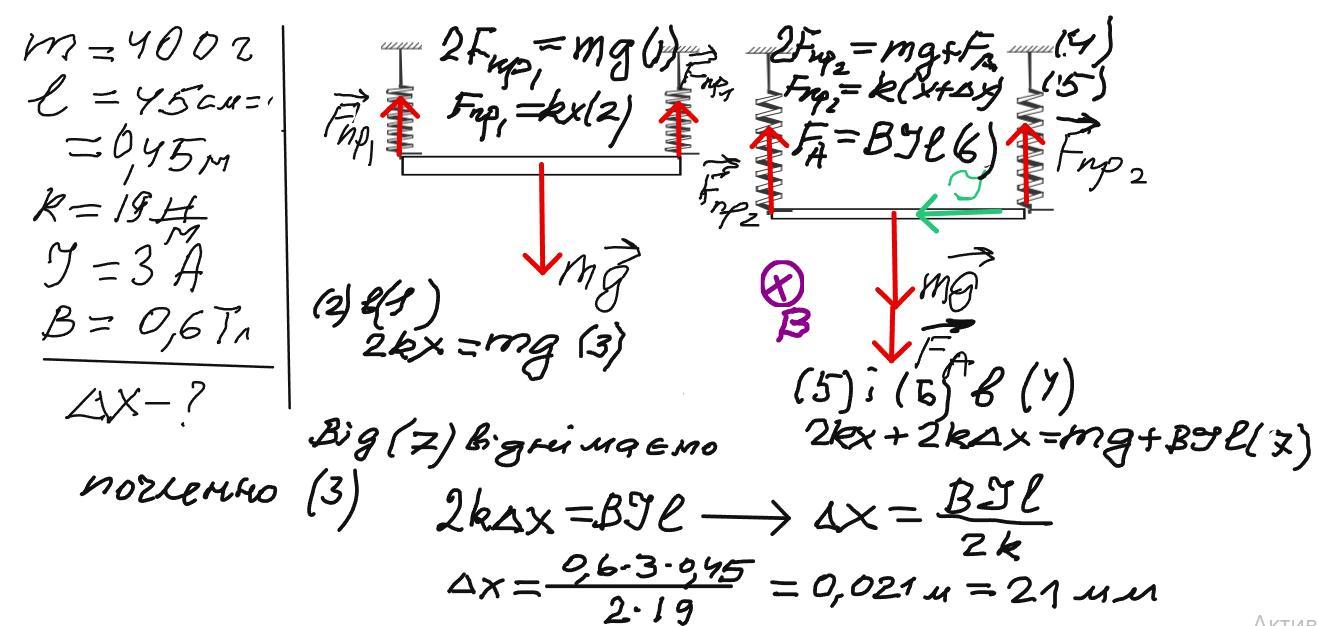 m = 400 г
l = 45 см =
= 0,45 м
k = 19 Н/м
J = 3 А
B = 0,6 Тл
Δx - ?
2Fпр₁ = mg (1)
Fпр₁ = kx (2)
Fпр₁
Fпр₁
mg
(2) в (1)
2kx = mg (3)
2Fпр₂ = mg + FА (4)
Fпр₂ = k(x+Δx) (5)
FА = BJl (6)
Fпр₂
Fпр₂
J
mg
FА
B
(5) і (6) в (4)
2kx + 2kΔx = mg + BJl (7)
Від (7) віднімаємо
почленно (3)
2kΔx = BJl → Δx = BJl / 2k
Δx = 0,6·3·0,45 / 2·19 = 0,021 м = 21 мм
Актив